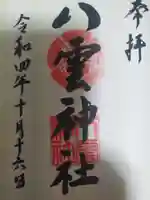 奉拝
八雲神社
令和四年十月十六日